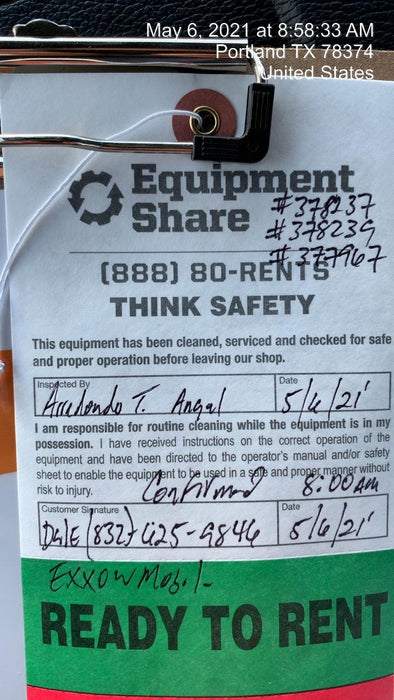 May 6, 2021 at 8:58:33 AM
Portland TX 78374
United States
Equipment
Share
#378237
#378239
#377967
(888) 80-RENTS
THINK SAFETY
This equipment has been cleaned, serviced and checked for safe
and proper operation before leaving our shop.
Inspected By
Date
Arredondo T. Angel
5/6/21'
I am responsible for routine cleaning while the equipment is in my
possession. I have received instructions on the correct operation of the
equipment and have been directed to the operator's manual and/or safety
sheet to enable the equipment to be used in a safe and proper manner without
risk to injury.
Confirmed 8:00 am
Customer Signature
Date
Dale (832) 425-9846
5/6/21'
ExxonMobil
READY TO RENT